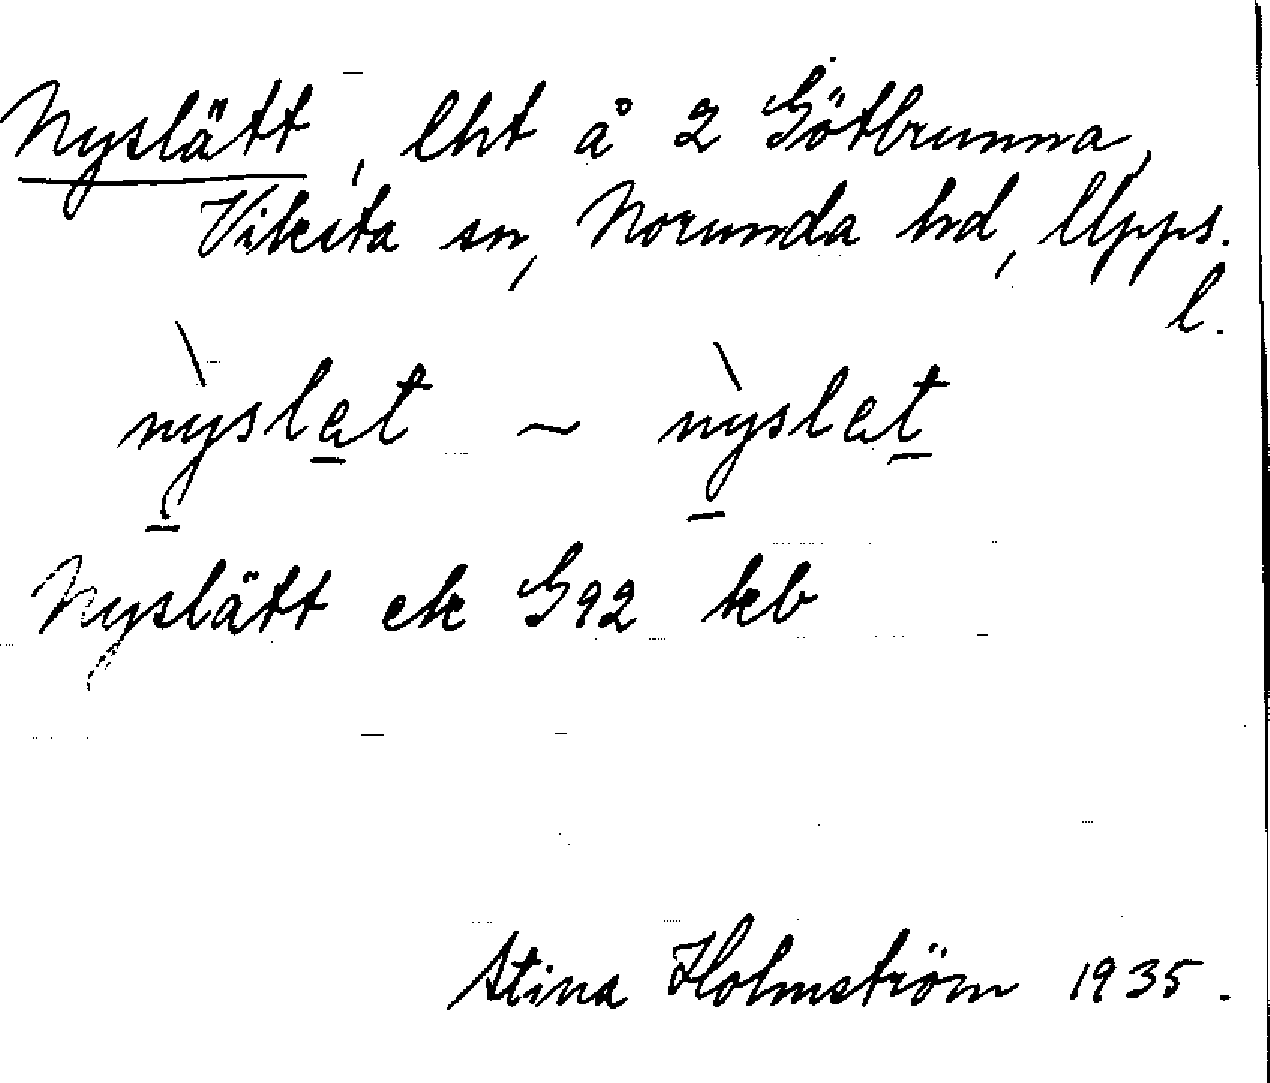 Nyslätt, lht å 2 Götbrunna,
Viksta sn, Norunda hd, Upps.
l.
nỳslat ~ nỳslat
Nyslätt ek G92 kb
Stina Holmström 1935.